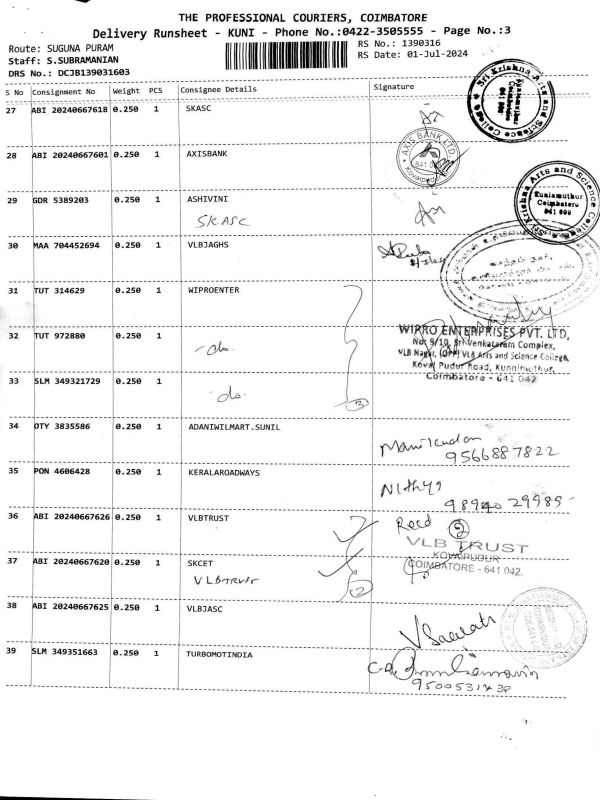 THE PROFESSIONAL COURIERS, COIMBATORE
Delivery Runsheet - KUNI - Phone No.:0422-3505555 - Page No.:3
Route: SUGUNA PURAM RS No.: 1390316
Staff: S.SUBRAMANIAN RS Date: 01-Jul-2024
DRS No.: DCJB139031603
S No Consignment No Weight PCS Consignee Details Signature
27 ABI 20240667618 0.250 1 SKASC
Sri Krishna Arts and Science College
Kuniamuthur
Coimbatore
641 008
28 ABI 20240667601 0.250 1 AXISBANK
AXIS BANK LTD.
Kovaipudur
29 GDR 5389203 0.250 1 ASHIVINI
SKASC
Sri Krishna Arts and Science College
Kuniamuthur
Coimbatore
641 008
30 MAA 704452694 0.250 1 VLBJAGHS
31 TUT 314629 0.250 1 WIPROENTER
32 TUT 972880 0.250 1
-do.
WIPRO ENTERPRISES PVT. LTD,
No: 9/10, Sri Venkataram Complex,
VLB Nagar, (OPP) VLB Arts and Science College,
Kovai Pudur Road, Kuniamuthur,
Coimbatore - 641 042
33 SLM 349321729 0.250 1
-do.
3
34 OTY 3835586 0.250 1 ADANIWILMART.SUNIL
Manikandan
9566887822
35 PON 4606428 0.250 1 KERALAROADWAYS
Nithya
9894029985
36 ABI 20240667626 0.250 1 VLBTRUST
Recd 2
VLB TRUST
KOVAIPUDUR
COIMBATORE - 641 042.
37 ABI 20240667620 0.250 1 SKCET
VLBTRUST
2
38 ABI 20240667625 0.250 1 VLBJASC
39 SLM 349351663 0.250 1 TURBOMOTINDIA